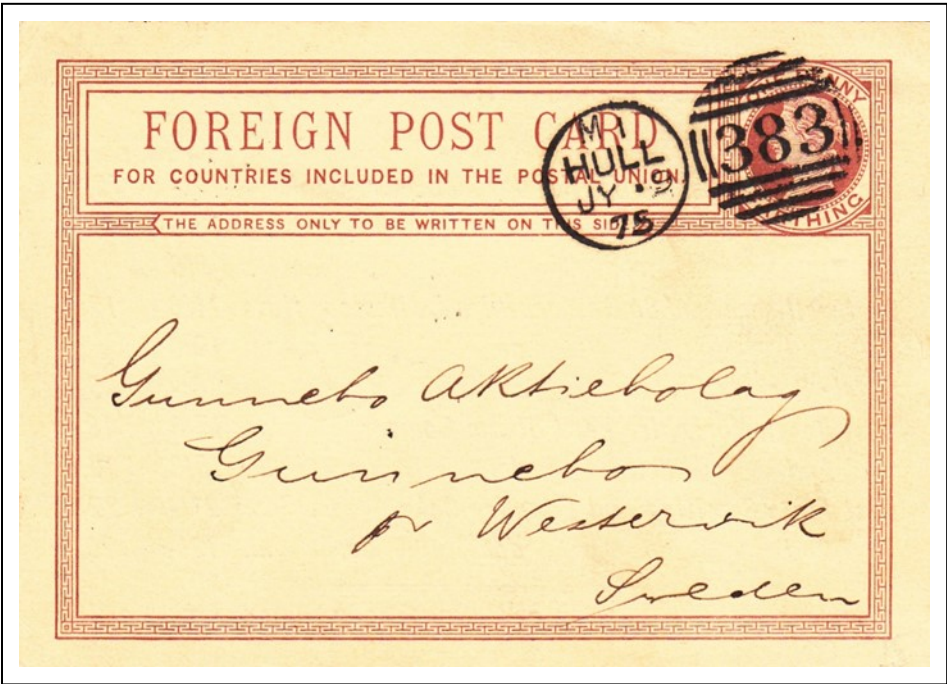 FOREIGN POST CARD
FOR COUNTRIES INCLUDED IN THE POSTAL UNION.
THE ADDRESS ONLY TO BE WRITTEN ON THIS SIDE
PENNY
FARTHING
M 1
HULL
JY 19
75
383
Gunnebo Aktiebolag
Gunnebo
pr Westerwik
Sweden